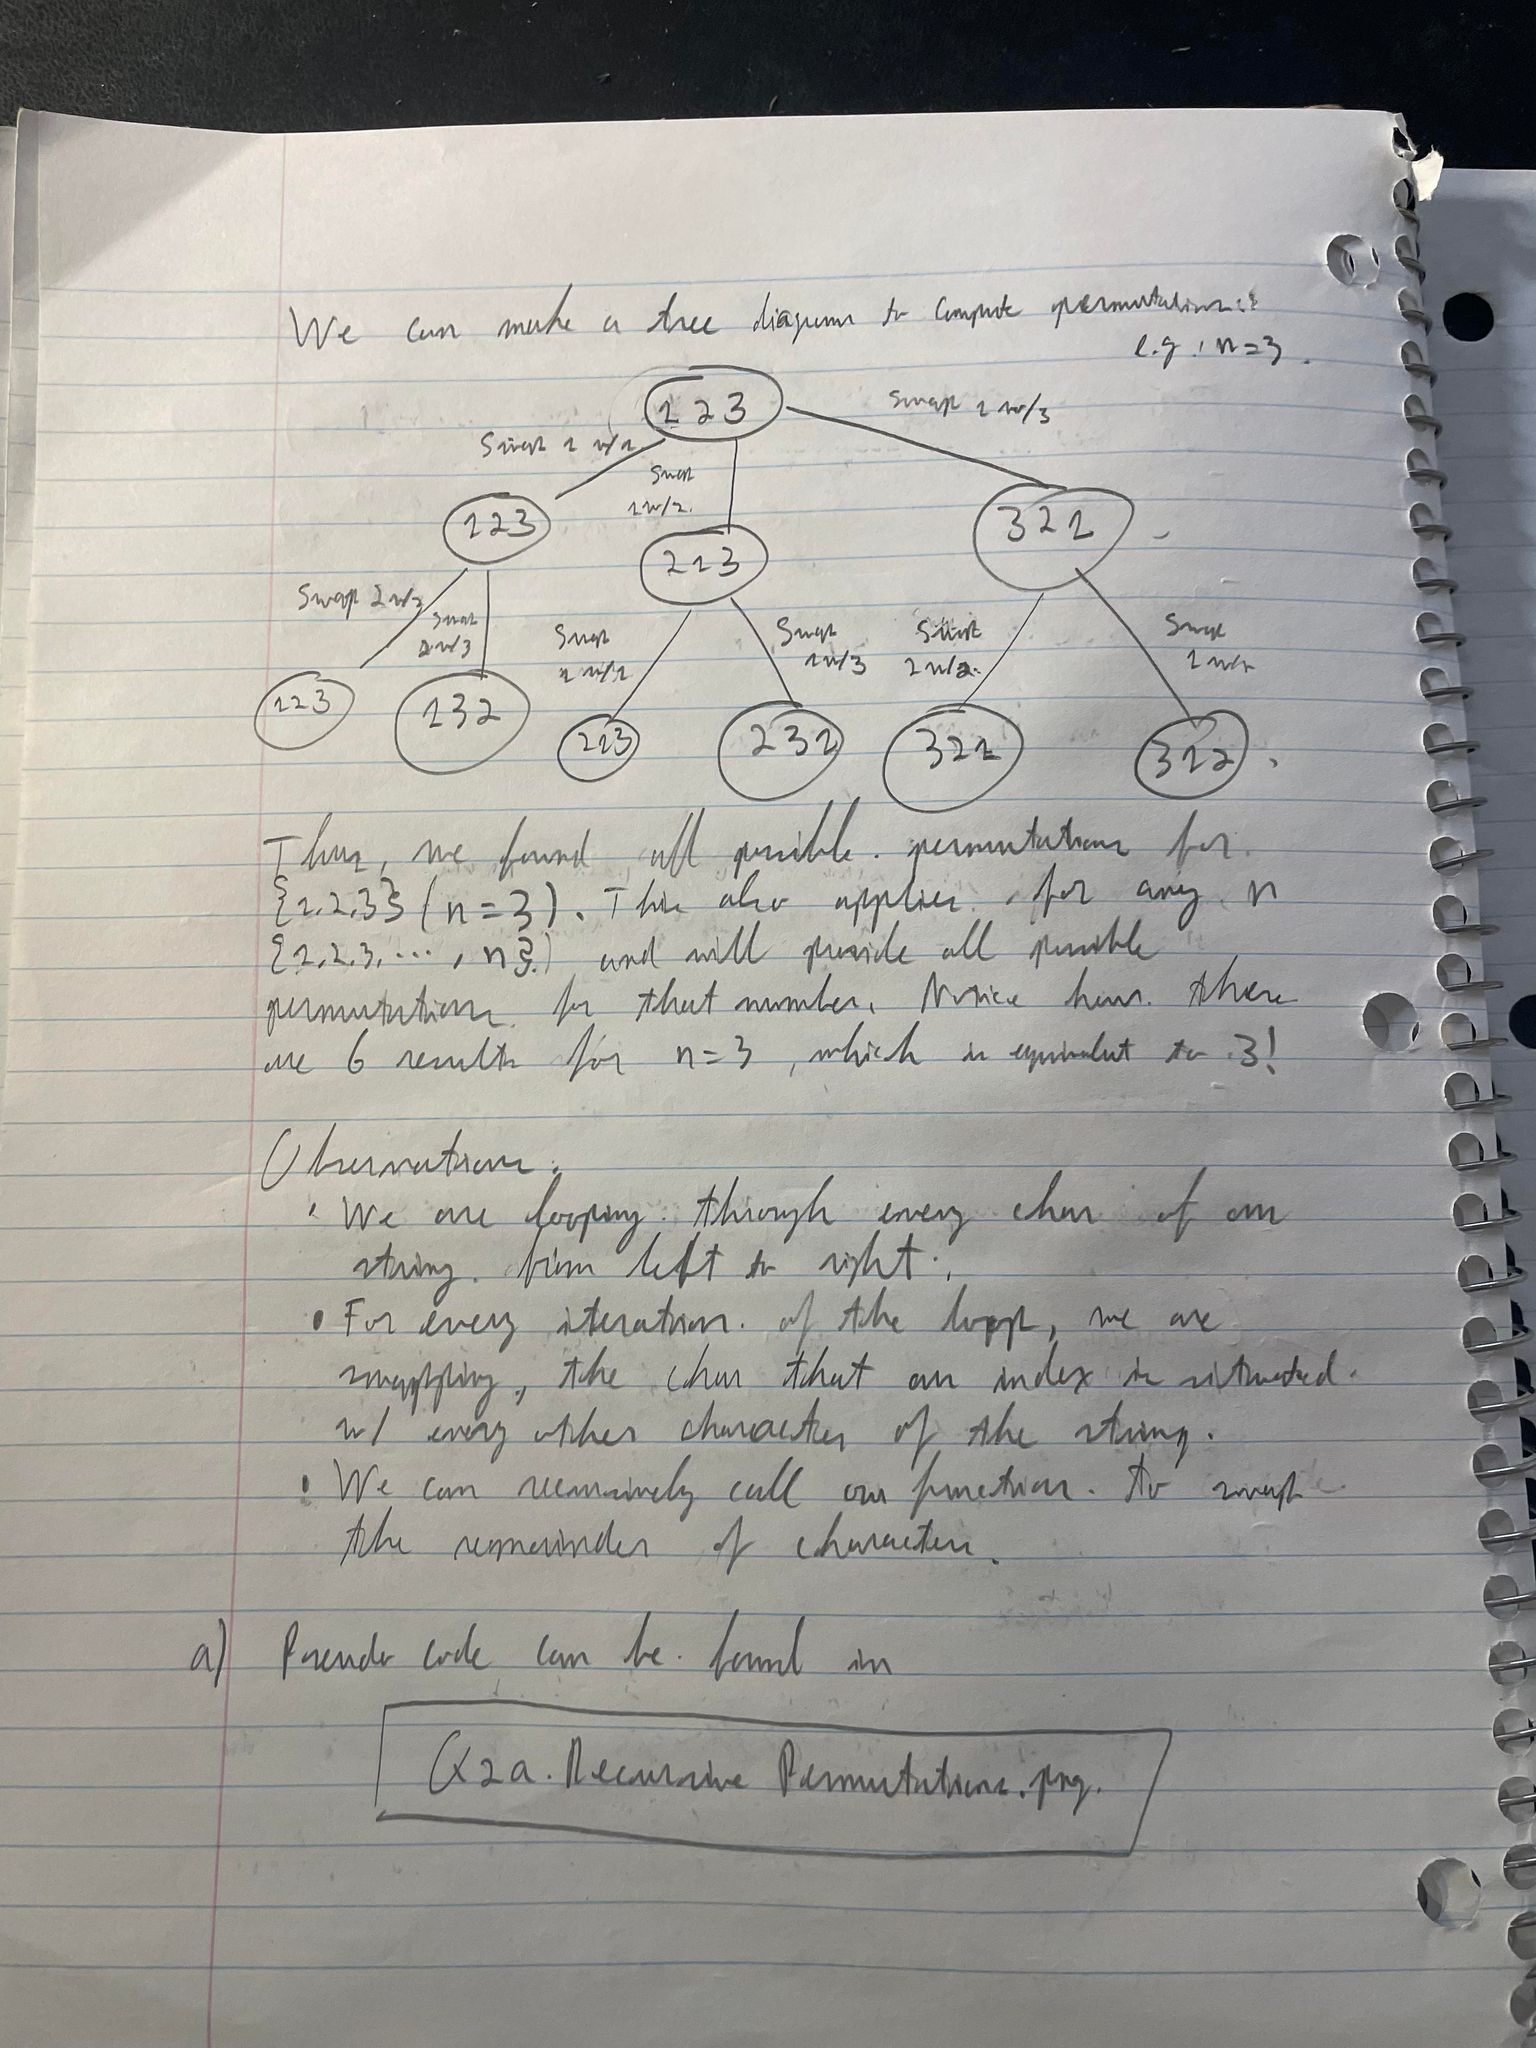 We can make a tree diagram to compute permutations:
e.g. n=3.
123
Swap 1 w/3
Swap 1 w/1
Swap
1 w/2.
123
213
321
Swap 2 w/2
Swap
2 w/3
Swap
1 w/1
Swap
1 w/3
Swap
2 w/2.
Swap
123
132
213
231
321
312
Thus, we found all possible permutations for
{1,2,3} (n=3). This also applies for any n
{1,2,3,..., n}) and will provide all possible
permutations for that number. Notice how there
are 6 results for n=3, which is equivalent to 3!
Observations:
• We are looping through every char of our
string from left to right.
• For every iteration of the loop, we are
swapping, the char that our index is situated
w/ every other character of the string.
• We can recursively call our function to swap
the remainder of characters.
a) Pseudo code can be found in
Q2a.Recursive Permutations.png.